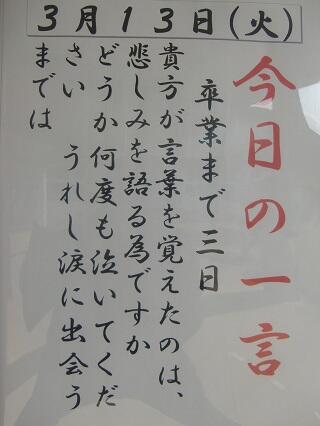 ３月１３日（火）
今日の一言
卒業まで三日
貴方が言葉を覚えたのは、
悲しみを語る為ですか
どうか何度も泣いてくだ
さい　うれし涙に出会う
までは